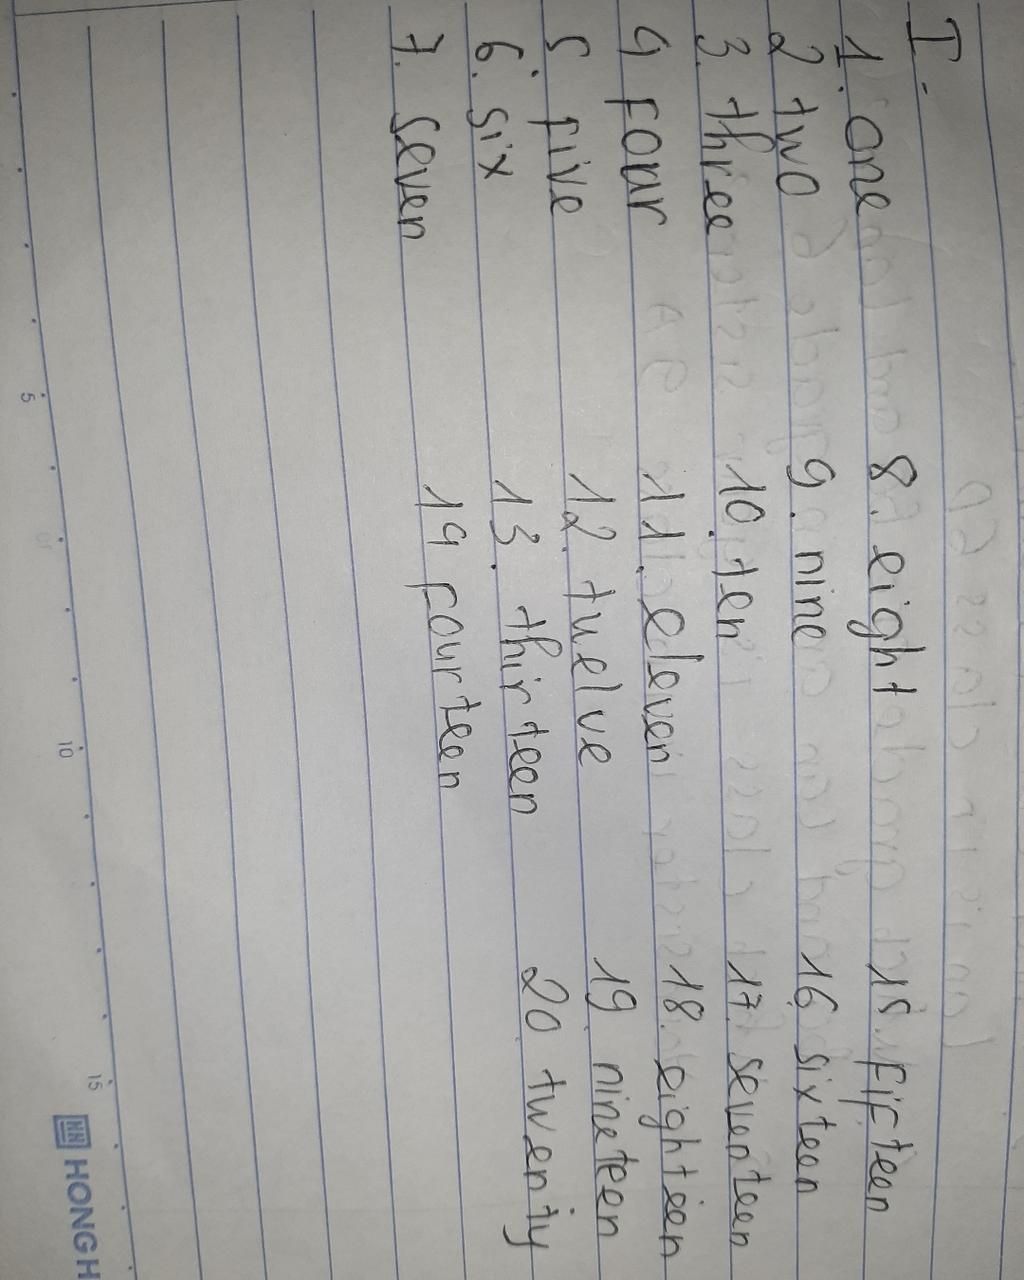 I.
1. one 8. eight 15. fifteen
2 two 9. nine 16 sixteen
3. three 10. ten 17. seventeen
4 four 11. eleven 18. eighteen
5 five 12. tuelve 19 nineteen
6. six 13. thirteen 20 twenty
7. seven 14 fourteen
5 10 15 HONG H